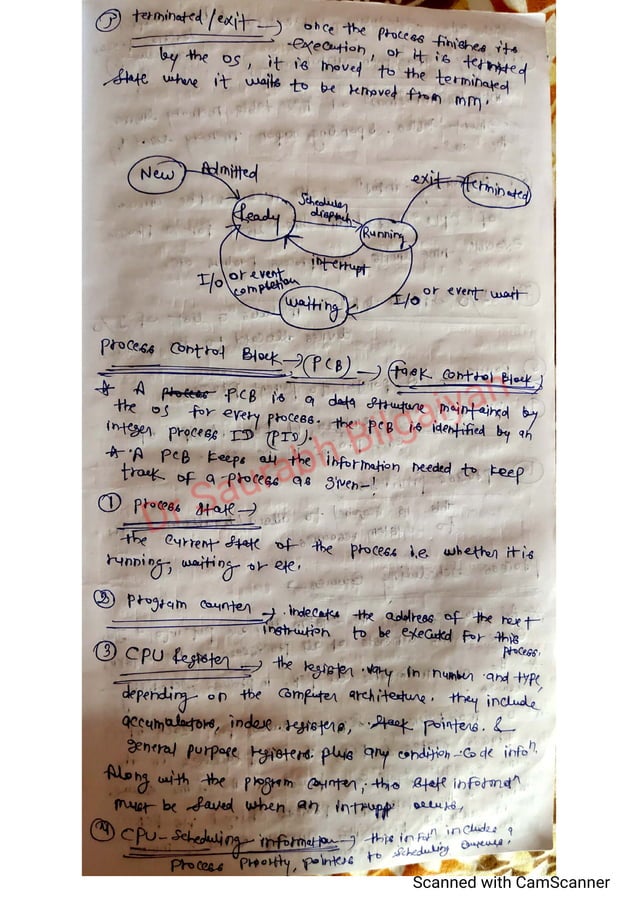 5) terminated/exit → once the process finishes its
execution, or it is termited
by the OS, it is moved to the terminated
state where it waits to be removed from mm.
New
Admitted
Ready
Scheduler
dispatch
Running
exit
terminated
interrupt
I/O or event
completion
waiting
I/O or event wait
process control Block → (PCB) → (task control Block)
* A process PCB is a data structure maintained by
the OS for every process. the PCB is identified by an
integer process ID (PID).
* A PCB keeps all the information needed to keep
track of a process as given-!
Dr Saurabh Bilgaiyan
① process state →
the current state of the process i.e. whether it is
running, waiting or etc.
② program counter → indecates the address of the next
instrution to be executed for this
process.
③ CPU Register → the register vary in number and type,
depending on the computer architecture. they include
accumulators, index registers, stack pointers &
general purpose registers plus any condition-code infoⁿ.
Along with the program counter, this state informⁿ
must be saved when an intrupp occurs,
④ CPU-scheduling information → this infoⁿ includes a
process priority, pointers to scheduling
Scanned with CamScanner